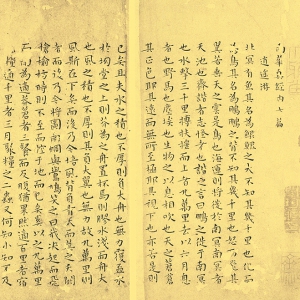 南華真經内七篇
逍遥游
北冥有魚其名為鯤鯤之大不知其幾千里也化而
為鳥其名為鵬鵬之背不知其幾千里也怒而飛其
翼若垂天之雲是鳥也海運則將徙於南冥南冥者
天池也齊諧者志怪者也諧之言曰鵬之徙于南冥
也水擊三千里摶扶摇而上者九萬里去以六月息
者也野馬也塵埃也生物之以息相吹也天之蒼蒼
其正色耶其遠而無所至極耶其視下也亦若是則
已矣且夫水之積也不厚則其負大舟也無力覆盃水
於坳堂之上則芥為之舟置杯焉則膠水淺而舟大
也風之積也不厚則其負大翼也無力故九萬里則
風斯在下矣而後乃今培風背負青天而莫之夭閼
者而後乃今將圖南蜩與鷽鳩笑之曰我決起而飛
搶榆枋時則不至而控于地而已矣奚以之九萬里
而南為適莽蒼者三飡而反腹猶果然適百里者宿
舂糧適千里者三月聚糧之二蟲又何知小知不及